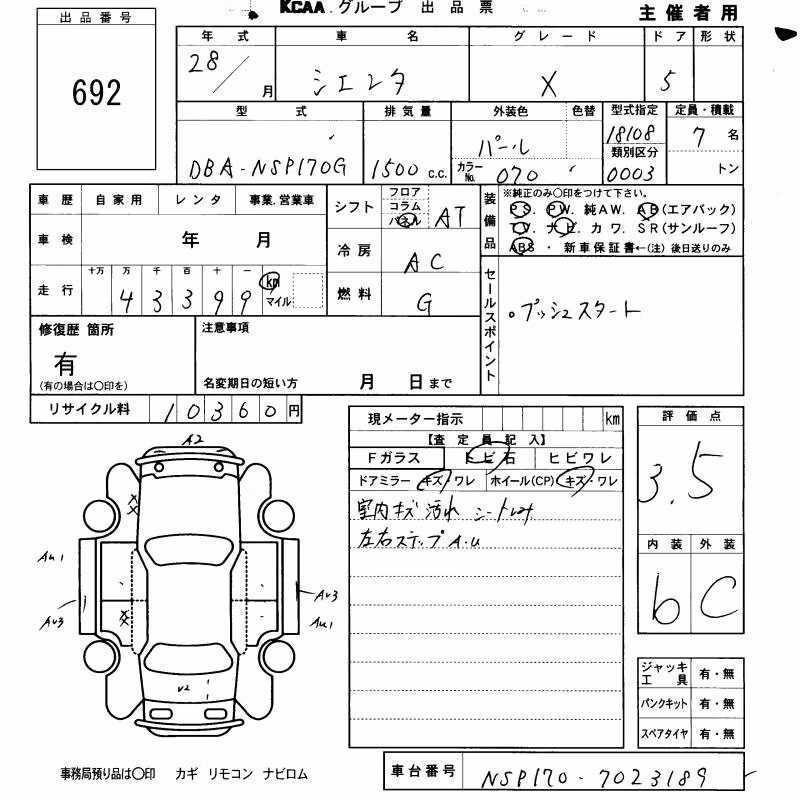 KCAA.グループ 出品票
主催者用
出品番号
692
年式 車名 グレード ドア 形状
28/ 月 シエンタ X 5
型式 排気量 外装色 色替 型式指定 定員・積載
DBA-NSP170G 1500 c.c. パール 18108 7名
カラーNo. 070 類別区分 0003 トン
車歴 自家用 レンタ 事業.営業車
車検 年 月
走行 十万 万 千 百 十 一 km マイル
43399
シフト フロア コラム パネル AT
冷房 AC
燃料 G
装備品
※純正のみ○印をつけて下さい。
PS. PW. 純AW. AB(エアバック)
TV. ナビ. カワ. SR(サンルーフ)
ABS ・ 新車保証書←(注)後日送りのみ
セールスポイント
○プッシュスタート
修復歴 箇所
有
(有の場合は○印を)
注意事項
名変期日の短い方 月 日まで
リサイクル料 10360円
現メーター指示 km
【査定員記入】
Fガラス トビ石 ヒビワレ
ドアミラー キズ・ワレ ホイール(CP) キズ・ワレ
室内キズ 汚れ シート
左右ステップA.U
評価点
3.5
内装 外装
b C
ジャッキ工具 有・無
パンクキット 有・無
スペアタイヤ 有・無
A2
XX
AU1
AU3
XX
AU3
AU1
V2
事務局預り品は○印 カギ リモコン ナビロム
車台番号 NSP170-7023189